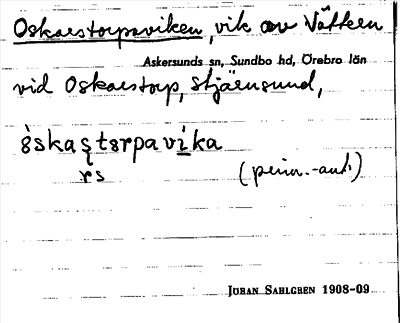 Oskarstorpsviken, vik av Vättern
Askersunds sn, Sundbo hd, Örebro län
vid Oskarstorp, Stjärnsund,
rs
Johan Sahlgren 1908-09